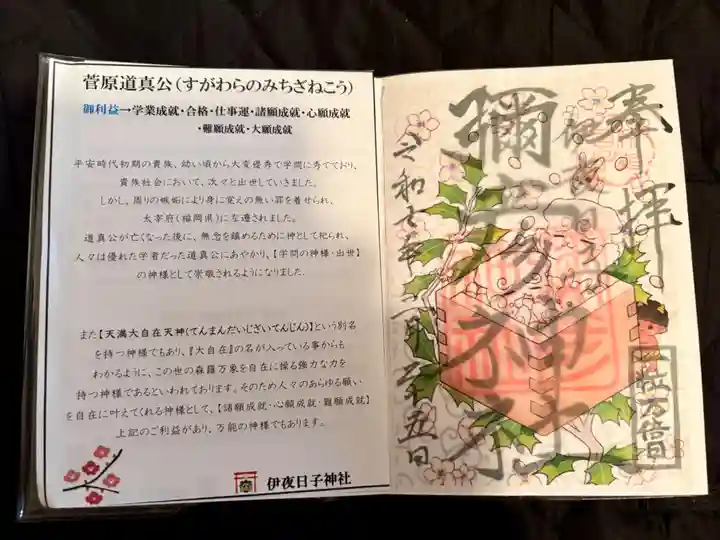 菅原道真公(すがわらのみちざねこう)
御利益→学業成就・合格・仕事運・諸願成就・心願成就
・難願成就・大願成就
平安時代初期の貴族、幼い頃から大変優秀で学問に秀でており、
貴族社会において、次々と出世していきました。
しかし、周りの嫉妬により身に覚えの無い罪を着せられ、
太宰府(福岡県)に左遷されました。
道真公が亡くなった後に、無念を鎮めるために神として祀られ、
人々は優れた学者だった道真公にあやかり、【学問の神様・出世】
の神様として崇敬されるようになりました。
また【天満大自在天神(てんまんだいじざいてんじん)】という別名
を持つ神様でもあり、『大自在』の名が入っている事からも
わかるように、この世の森羅万象を自在に操る強力な力を
持つ神様であるといわれております。そのため人々のあらゆる願い
を自在に叶えてくれる神様として、【諸願成就・心願成就・難願成就】
上記のご利益があり、万能の神様でもあります。
伊夜日子神社
奉拝
彌彦神社
一粒万倍日